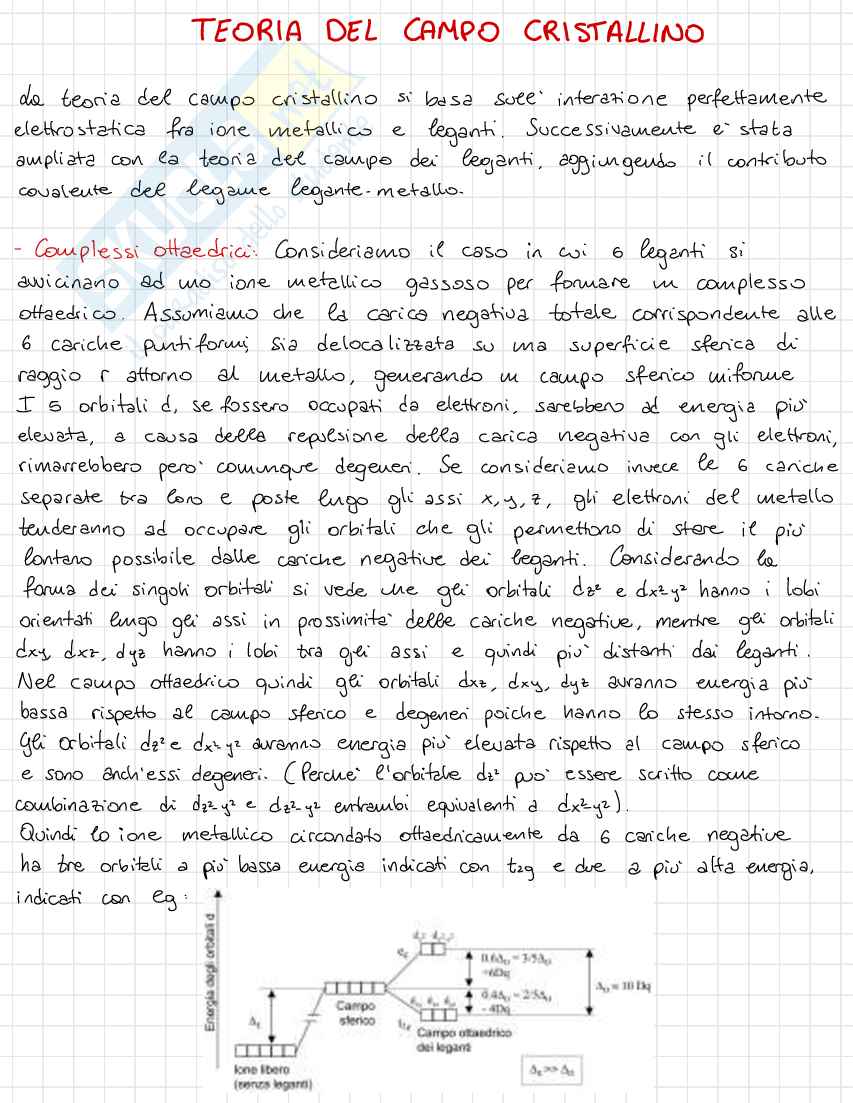 TEORIA DEL CAMPO CRISTALLINO
La teoria del campo cristallino si basa sull' interazione perfettamente
elettrostatica fra ione metallico e leganti. Successivamente e' stata
ampliata con la teoria del campo dei leganti, aggiungendo il contributo
covalente del legame legante-metallo.
- Complessi ottaedrici: Consideriamo il caso in cui 6 leganti si
avvicinano ad uno ione metallico gassoso per formare un complesso
ottaedrico. Assumiamo che la carica negativa totale corrispondente alle
6 cariche puntiformi, sia delocalizzata su una superficie sferica di
raggio r attorno al metallo, generando un campo sferico uniforme
I 5 orbitali d, se fossero occupati da elettroni, sarebbero ad energia piu'
elevata, a causa della repulsione della carica negativa con gli elettroni,
rimarrebbero pero' comunque degeneri. Se consideriamo invece le 6 cariche
separate tra loro e poste lungo gli assi x, y, z, gli elettroni del metallo
tenderanno ad occupare gli orbitali che gli permettono di stare il piu'
lontano possibile dalle cariche negative dei leganti. Considerando la
forma dei singoli orbitali si vede che gli orbitali dz² e dx²-y² hanno i lobi
orientati lungo gli assi in prossimita' delle cariche negative, mentre gli orbitali
dxy, dxz, dyz hanno i lobi tra gli assi e quindi piu' distanti dai leganti.
Nel campo ottaedrico quindi gli orbitali dxz, dxy, dyz avranno energia piu'
bassa rispetto al campo sferico e degeneri poiche hanno lo stesso intorno.
Gli orbitali dz² e dx²-y² avranno energia piu' elevata rispetto al campo sferico
e sono anch'essi degeneri. (Perche' l'orbitale dz² puo' essere scritto come
combinazione di dz²-y² e dz²-y² entrambi equivalenti a dx²-y²).
Quindi lo ione metallico circondato ottaedricamente da 6 cariche negative
ha tre orbitali a piu' bassa energia indicati con t2g e due a piu' alta energia,
indicati con eg:
Energia degli orbitali d
eg
0.6Δo = 3/5Δo
+6Dq
Δo = 10 Dq
0.4Δo = 2/5Δo
- 4Dq
Campo
sferico
t2g
Campo ottaedrico
dei leganti
Ione libero
(senza leganti)
SKUOLA.net
il paradiso dello studente